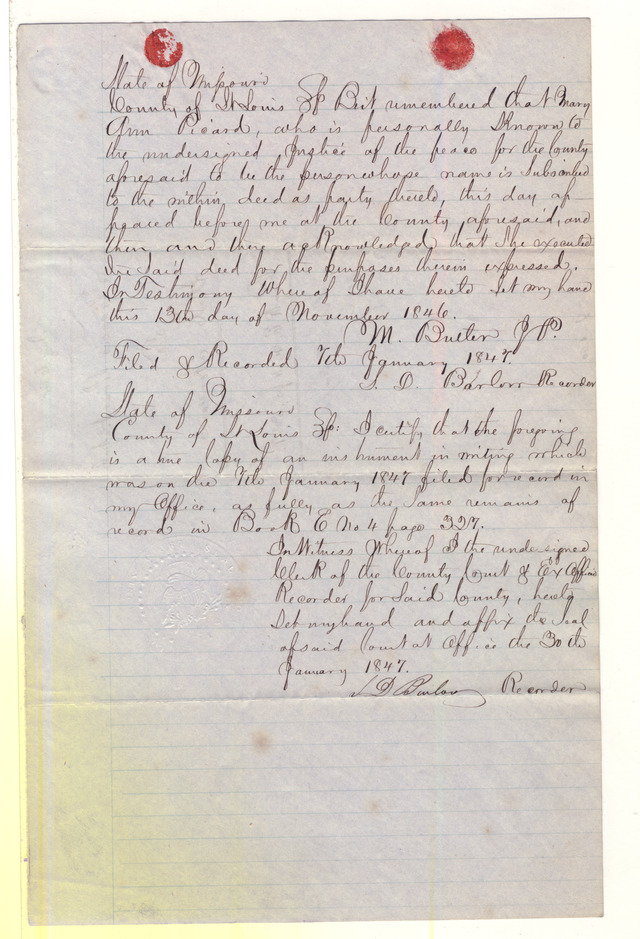 State of Missouri
County of St Louis Be it remembered that Mary
Ann Picard, who is personally Known to
the undersigned Justice of the peace for the County
aforesaid to be the person whose name is Subscribed
to the within deed as party thereto, this day ap
peared before me at the County aforesaid, and
then and there acknowledged that She executed
the Said deed for the purposes therein expressed.
In Testimony Whereof I have hereto Set my hand
this 13th day of November 1846.
M. Butler J P.
Filed & Recorded 7th January 1847.
S. D. Barlow Recorder
State of Missouri
County of St Louis I certify that the foregoing
is a true Copy of an instrument in writing which
was on the 7th January 1847 filed for record in
my Office, as fully as the Same remains of
record in Book E No 4 page 327.
In Witness Whereof I the undersigned
Clerk of the County Court & Ex Officio
Recorder for Said County, hereto
Set my hand and affix the Seal
of said Court at Office the 30th
January 1847.
S D Barlow Recorder